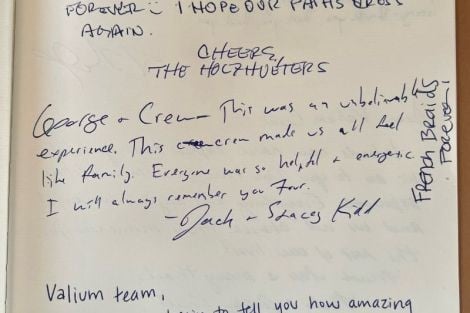 FOREVER :) I HOPE OUR PATHS CROSS
AGAIN.
CHEERS,
THE HOLZHUETERS
George + Crew - This was an unbelievable
experience. This crew made us all feel
like family. Everyone was so helpful + energetic.
I will always remember you four.
- Jack + Stacey Kidd
FRENCH BRAIDS
FOREVER!
Valium team,
to tell you how amazing